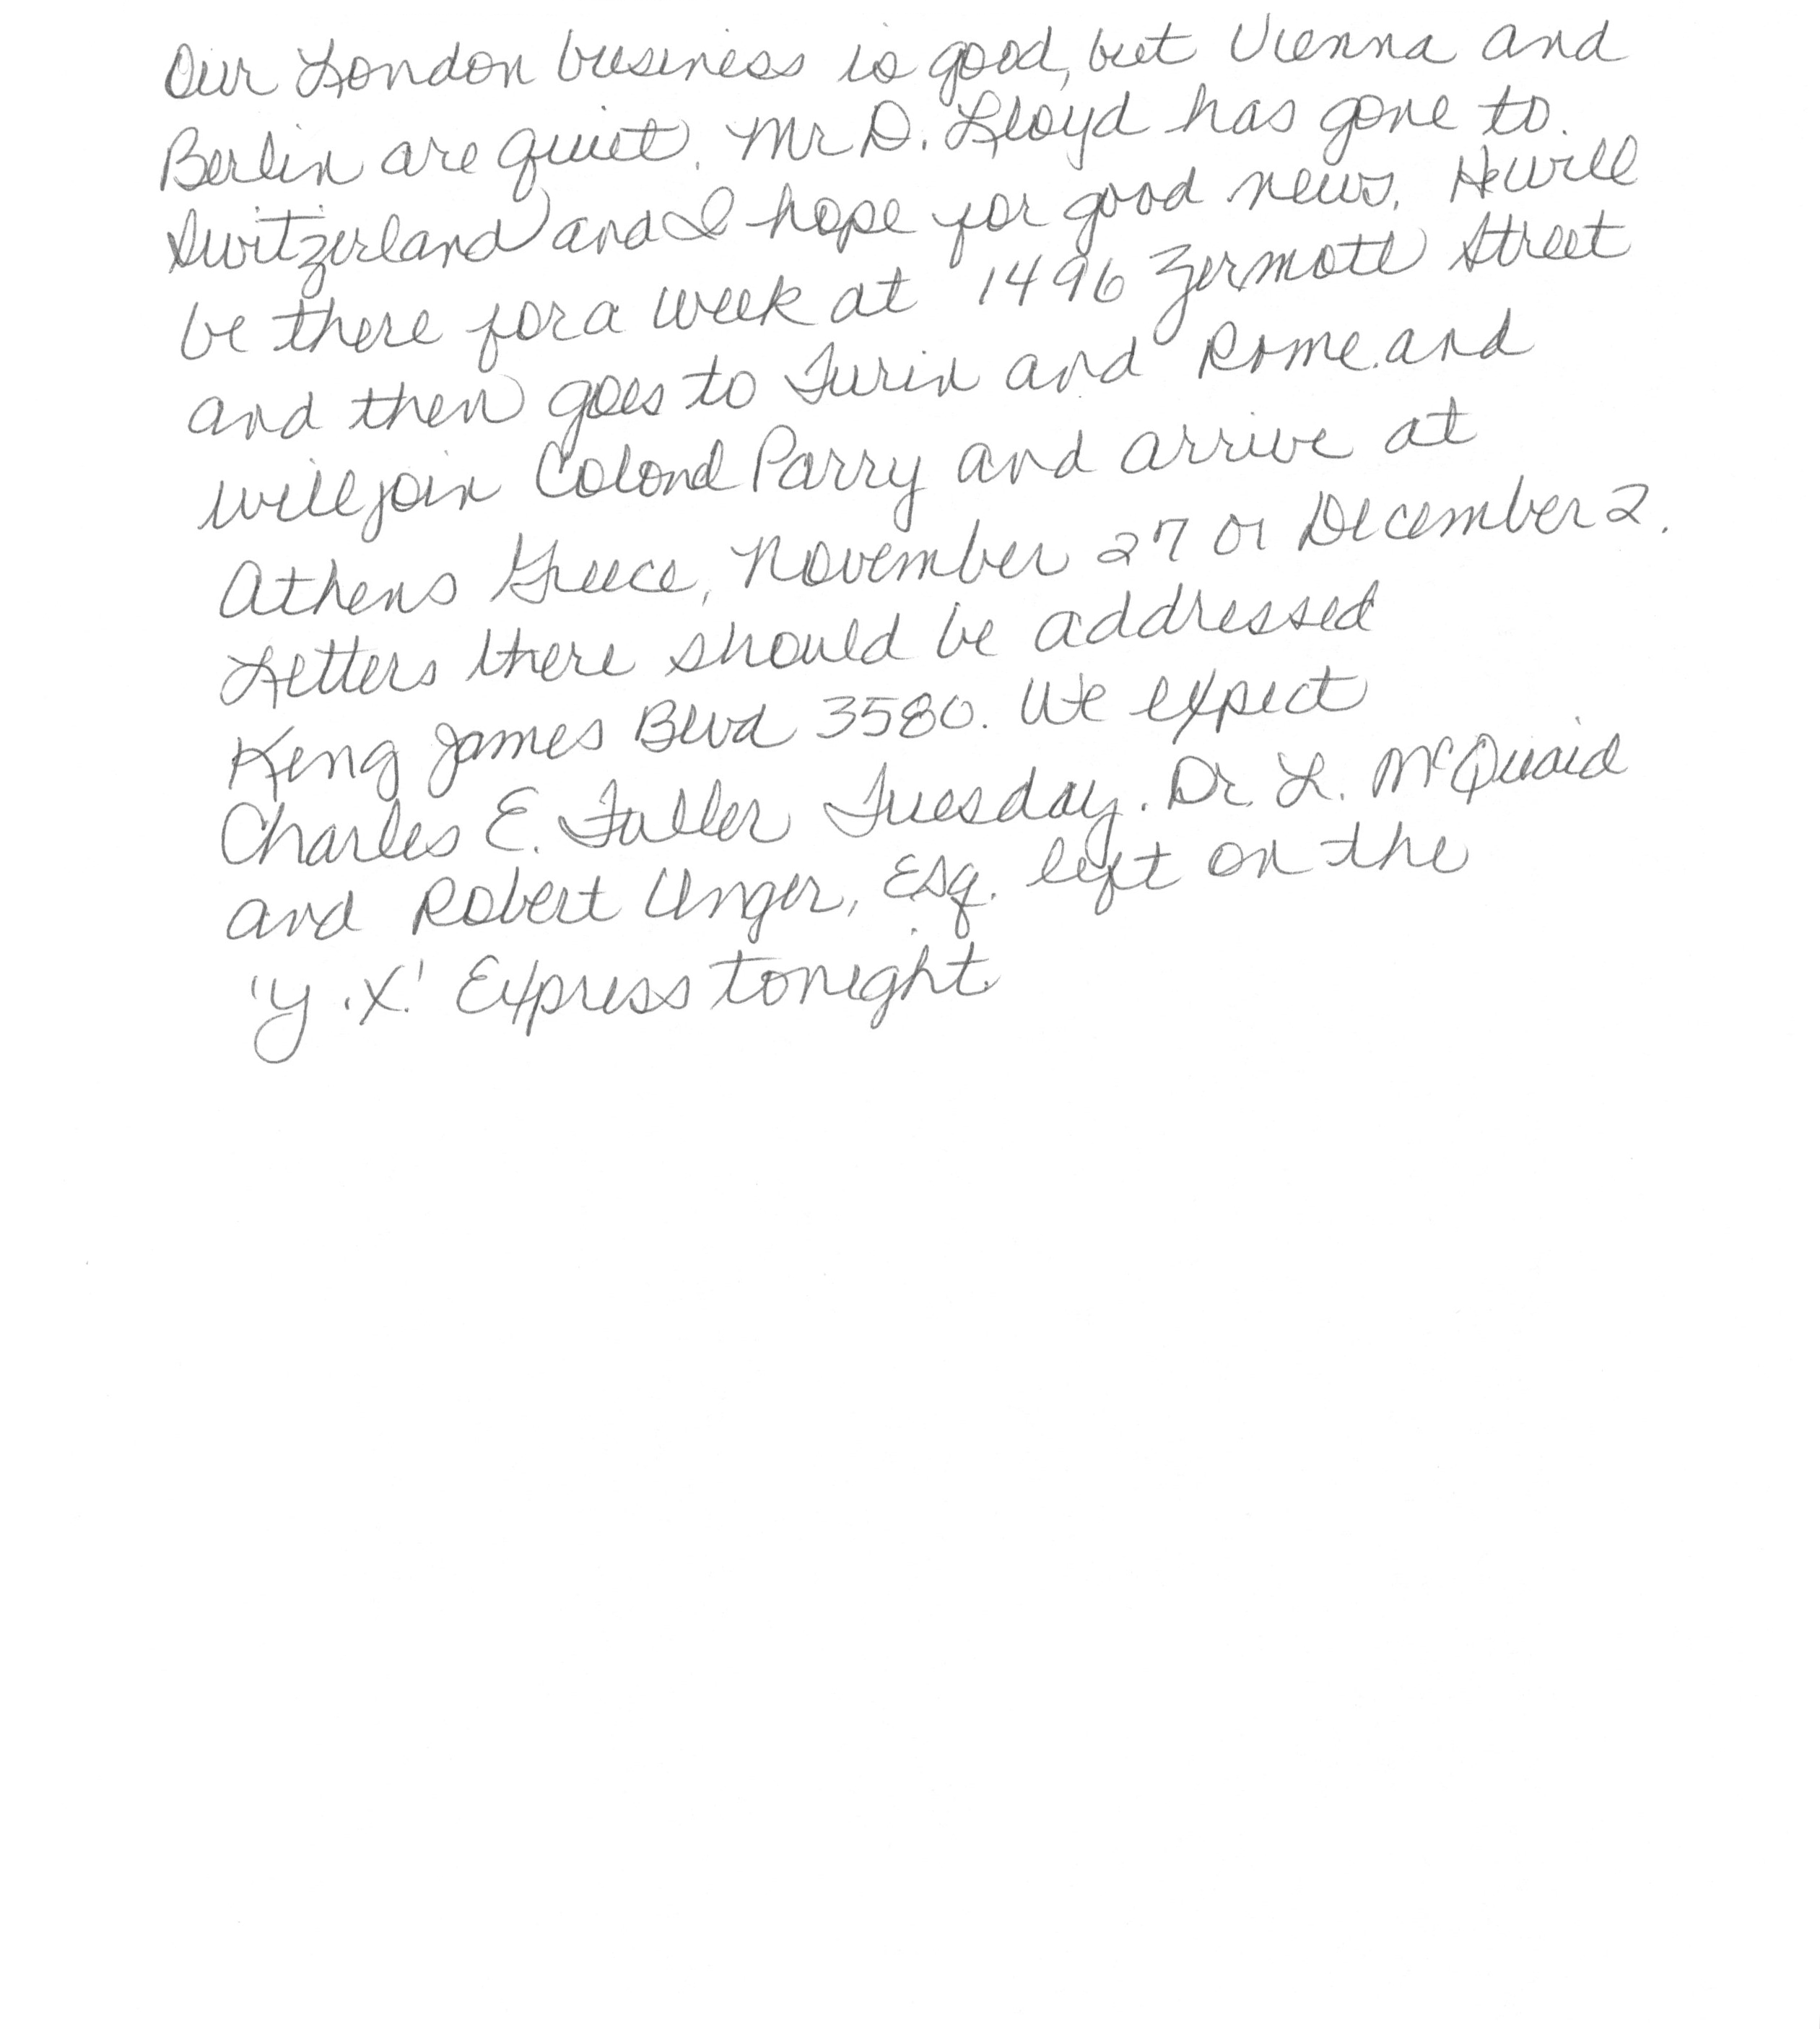 Our London business is good, but Vienna and
Berlin are quiet. Mr D. Lloyd has gone to.
Switzerland and I hope for good news. He will
be there for a week at 1496 Zermott Street
and then goes to Turin and Rome and
will join Colonel Parry and arrive at
Athens Greece, November 27 or December 2.
Letters there should be addressed
King James Blvd 3580. We expect
Charles E. Fuller Tuesday. Dr. L. McQuaid
and Robert Unger, Esq. left on the
'Y.X.' Express tonight.